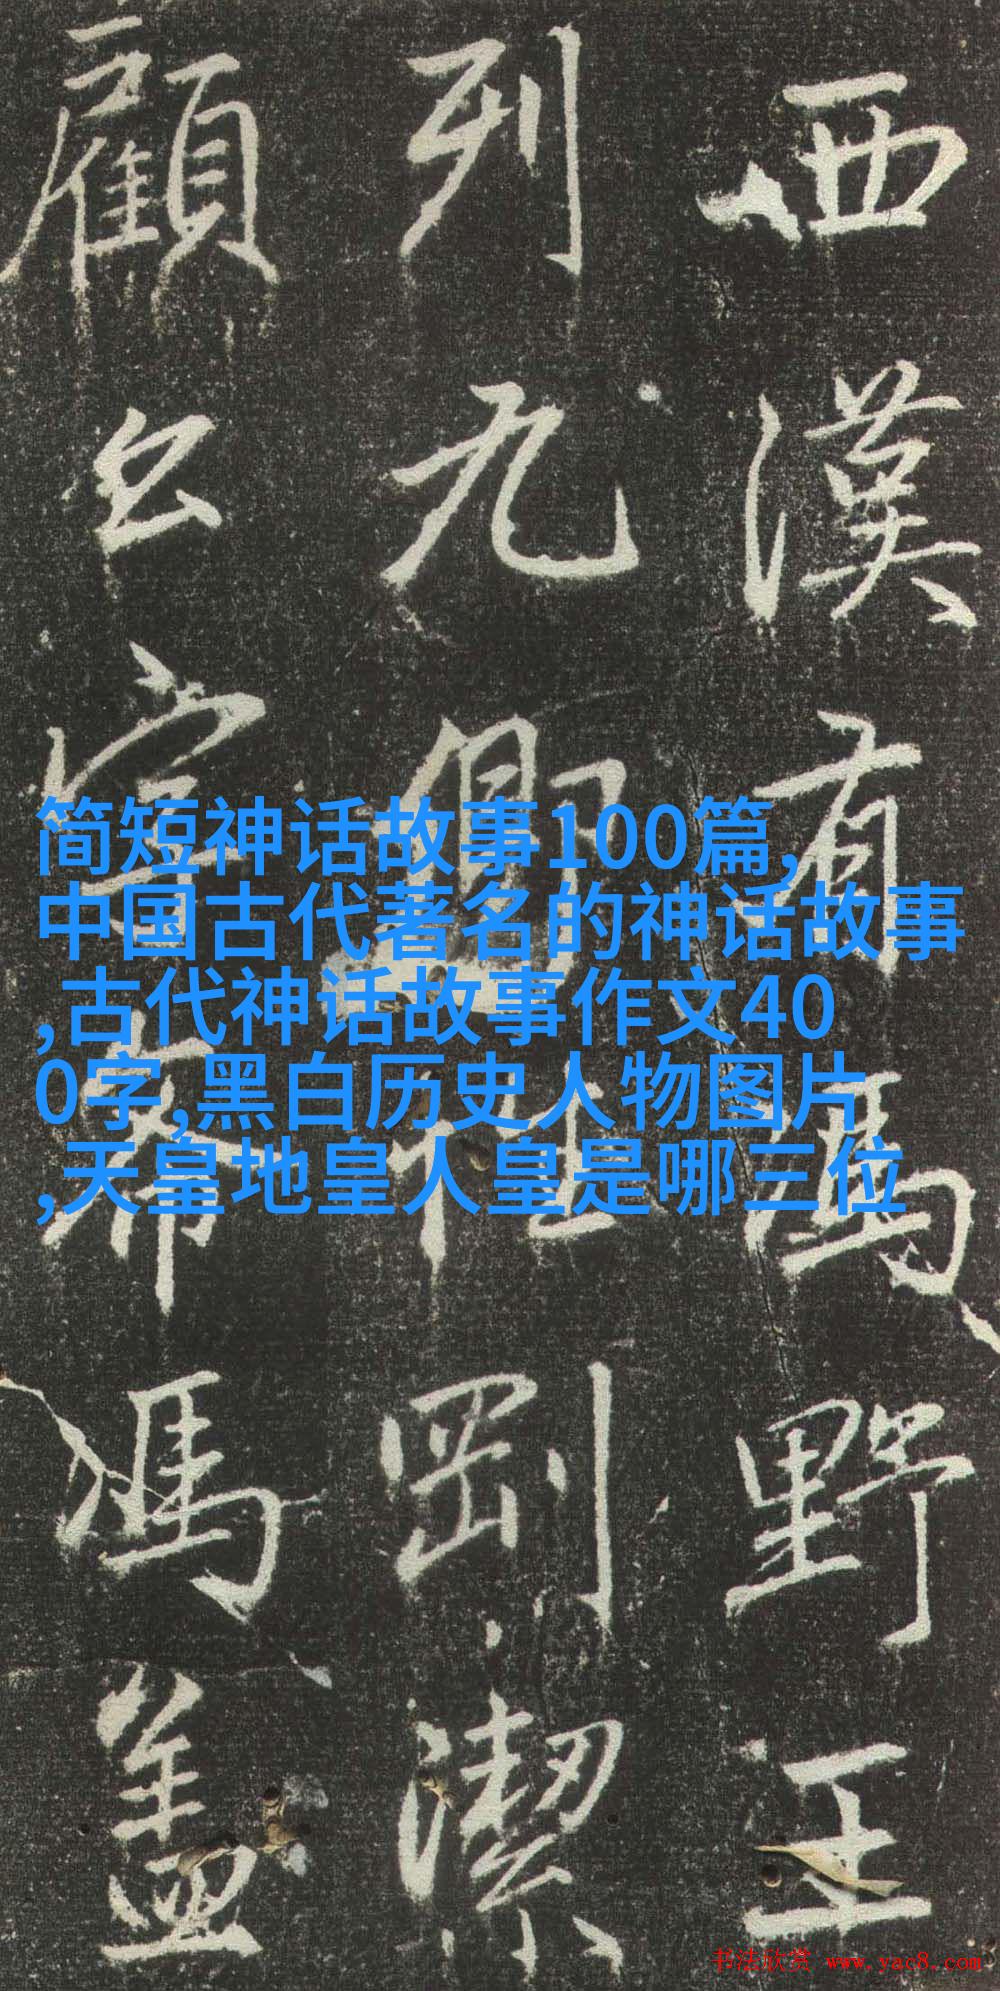 西漢有馮野王
列九卿剛潔
顧宣帝馮盖
简短神话故事100篇,
中国古代著名的神话故事
,古代神话故事作文40
0字,黑白历史人物图片
,天皇地皇人皇是哪三位
书法欣赏 www.yac8.com